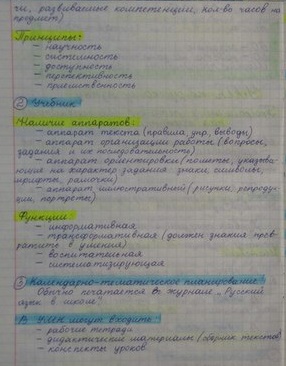 чи, развиваемые компетенции, кол-во часов на
предмет)
Принципы:
– научность
– системность
– доступность
– перспективность
– преемственность
② Учебник
Наличие аппаратов:
– аппарат текста (правила, упр, выводы)
– аппарат организации работы (вопросы,
задания и их последовательность)
– аппарат ориентировки (пометы, указыва-
ющие на характер задания знаки, символы,
шрифты, рамочки)
– аппарат иллюстративный (рисунки, репродук-
ции, портреты)
Функции:
– информативная
– трансформативная (должен знания прев-
ратить в умения)
– воспитательная
– систематизирующая
③ Календарно-тематическое планирование
Обычно печатается в журнале „Русский
язык в школе"
В УМК могут входить:
– рабочие тетради
– дидактические материалы (сборник текстов)
– конспекты уроков